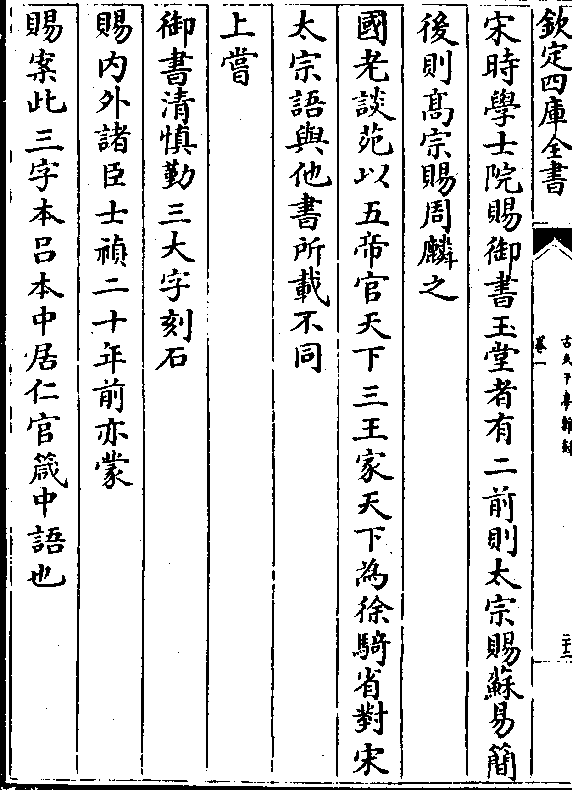 欽定四庫全書
古夫于亭雜錄
卷一
二十二
宋時學士院賜御書玉堂者有二前則太宗賜蘇易簡
後則髙宗賜周麟之
國老談苑以五帝官天下三王家天下為徐騎省對宋
太宗語與他書所載不同
上嘗
御書清慎勤三大字刻石
賜内外諸臣士禎二十年前亦蒙
賜案此三字本吕本中居仁官箴中語也